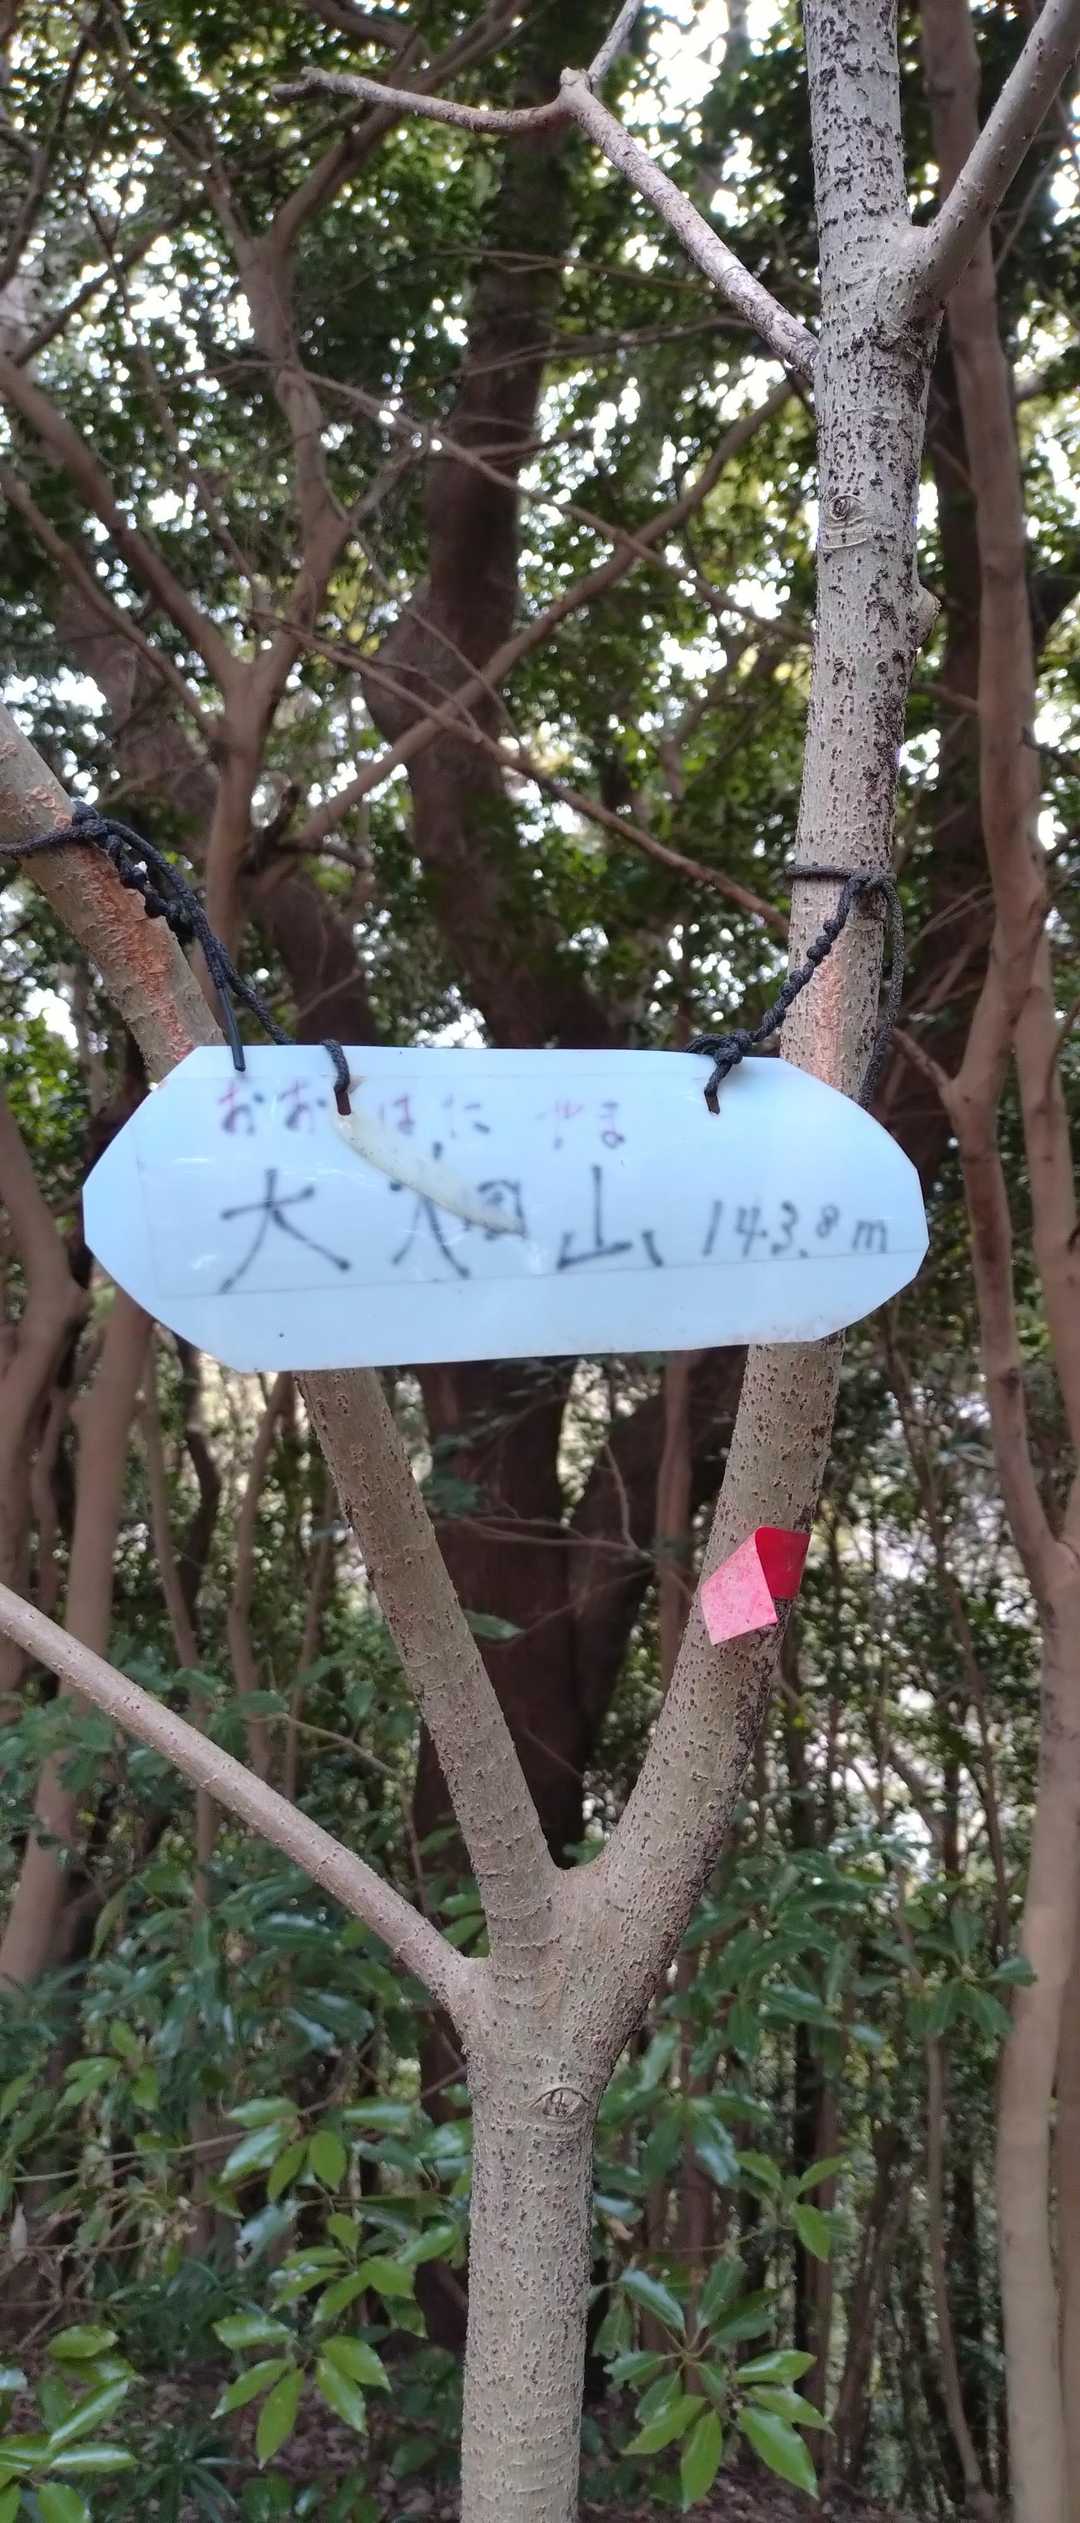 おおはた やま
大畑山 143.8m